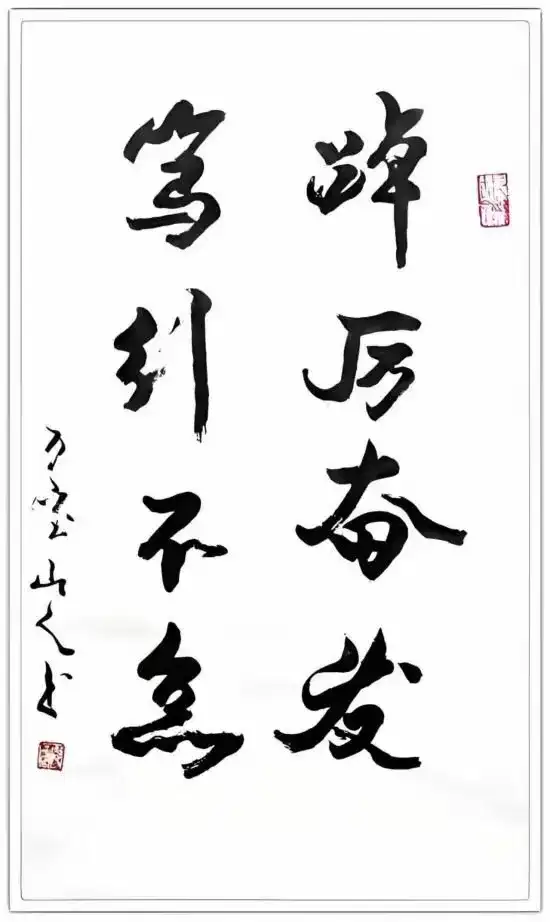 踔厉奋发
笃行不怠
万山人书